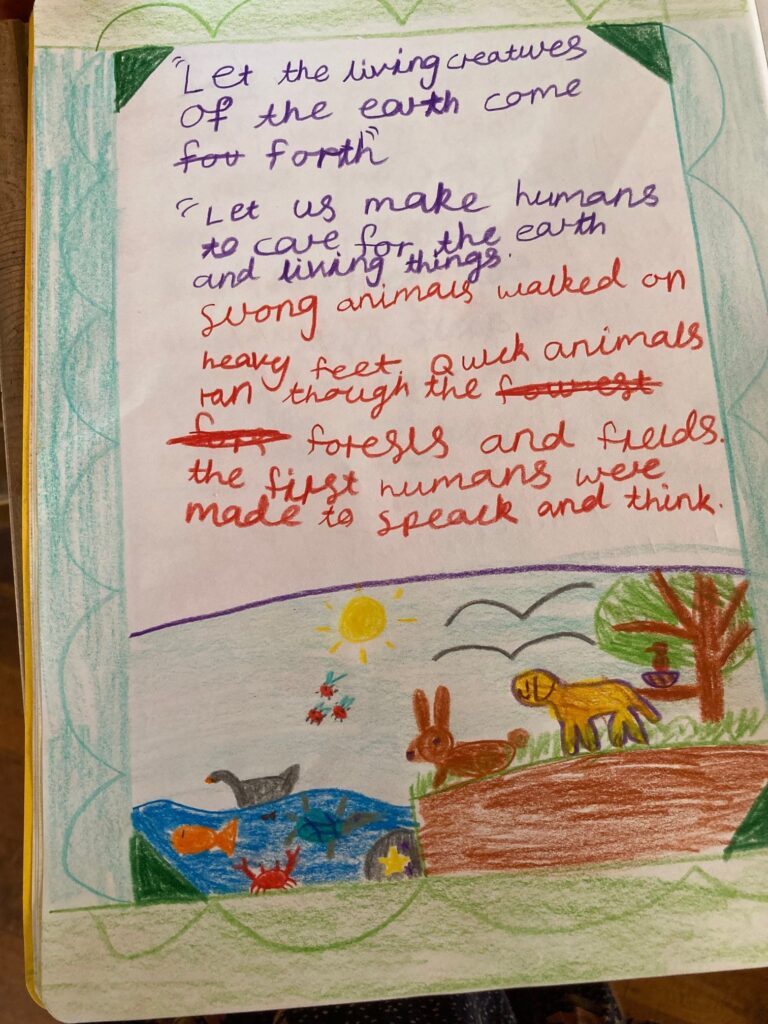 "Let the living creatures
of the earth come
fou forth"
"Let us make humans
to care for the earth
and living things.
Strong animals walked on
heavy feet. Quick animals
ran though the fowrest
forests and fields.
the first humans were
made to speack and think.